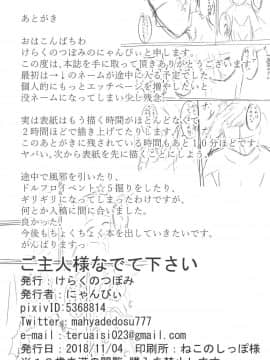 あとがき
おはこんばちわ
けらくのつぼみのにゃんぴぃと申します。
この度は、本誌を手に取って頂きありがとうございます。
最初は→↓のネームが途中に入る予定でした。
個人的にもっとエッチページを増やしたいと
没ネームになってしまい少し残念。
実は表紙はもう描く時間がほとんどなくて
2時間ほどで描き上げてたりします。
このあとがきに残されている時間もあと10分ほどです。
ヤバい、次から表紙を先に描くことにしよう。
途中で風邪を引いたり、
ドルフロイベント☆5掘りをしたり、
ギリギリになってしまったわけですが、
何とか入稿に間に合いました。
良かった！
今後もちょくちょく本を出していきたいです。
がんばりますっ
ご主人様なでて下さい
発行：けらくのつぼみ
発行者：にゃんぴぃ
pixivID：5368814
Twitter：mahyadedosu777
e-mail：teruaisi023@gmail.com
発行日：2018/11/04 印刷所：ねこのしっぽ様